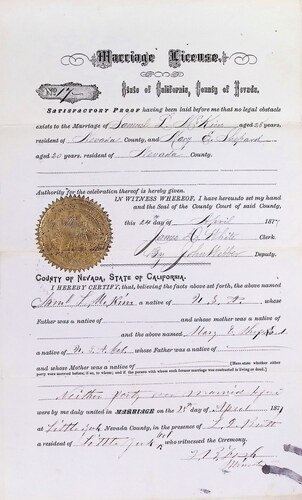 Marriage License.
State of California, County of Nevada.
No. 17
SATISFACTORY PROOF having been laid before me that no legal obstacle
exists to the Marriage of Samuel L. McKim aged 28 years,
resident of Nevada County, and Mary E. Shepard
aged 20 years, resident of Nevada County.
Authority for the celebration thereof is hereby given.
IN WITNESS WHEREOF, I have hereunto set my hand
and the Seal of the County Court of said County.
this 24th day of April 187
James White Clerk
By John Webber Deputy.
COUNTY OF NEVADA, STATE OF CALIFORNIA.
I HEREBY CERTIFY, that, believing the facts above set forth, the above named
Saml L. McKim a native of whose
Father was a native of and whose mother was a native
of and the above named Mary E. Shepard
a native of whose Father was a native of
and whose Mother was a native of [Here state whether either
party were married before; if so, to whom; and if the person with whom such former marriage was contracted is living or dead.
Neither party ever married before
were by me duly united in MARRIAGE on the 25th day of April 187
at Little York Nevada County, in the presence of
a resident of Little York who witnessed the Ceremony.
Minister